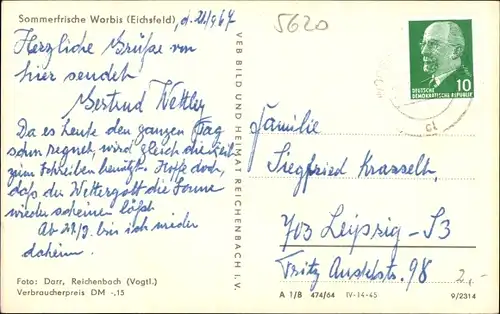 Sommerfrische Worbis (Eichsfeld), d. 21/9.67
Herzliche Grüße von
hier sendet
Gertrud Nettley
Da es heute den ganzen Tag
schon regnet, wird gleich die Zeit
zum Schreiben benützt. Hoffe doch,
daß der Wettergott die Sonne
wieder scheinen läßt.
Ab 28/9. bin ich wieder
daheim.
Foto: Darr, Reichenbach (Vogtl.)
Verbraucherpreis DM -.15
VEB BILD UND HEIMAT REICHENBACH I. V.
5620
DEUTSCHE
DEMOKRATISCHE REPUBLIK
10
Familie
Siegfried Krasselt
703 Leipzig - S3
Fritz Austelstr. 98
2,-
A 1/8 474/64 IV-14-45 9/2314